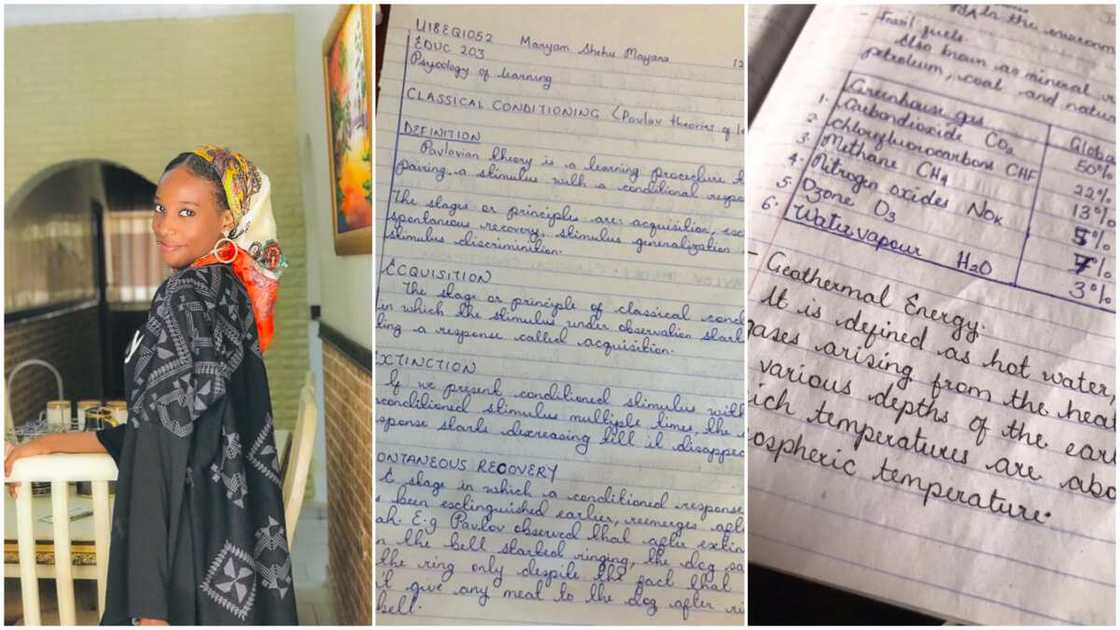 U18EQ1052 Maryam Shehu Mayana 12
EDUC 203
Psycology of learning
CLASSICAL CONDITIONING (Pavlov theories of l
DEFINITION
Pavlovian theory is a learning procedure
pairing a stimulus with a conditional respo
The stages or principles are: acquisition, ex
spontaneous recovery, stimulus generalization
stimulus discrimination.
ACQUISITION
The stage or principle of classical cond
in which the stimulus under observation star
ting a response called acquisition.
EXTINCTION
If we present conditioned stimulus with
conditioned stimulus multiple times, the
sponse starts decreasing till it disappea
ONTANEOUS RECOVERY
A stage in which a conditioned response
s been extinguished earlier, reemerges afte
ah. E.g Pavlov observed that after extin
n the bell started ringing, the dog sa
the ring only despite the fact that
't give any meat to the dog after ri
bell.
in the environm
- Fossil fuels.
Also known as mineral
petroleum, coal and natu
Greenhouse gas Globa
1. Carbondioxide CO2 50%
2. Chlorofluorocarbons CHF 22%
3. Methane CH4 13%
4. Nitrogen oxides NOx 5%
5. Ozone O3 7%
6. Water vapour H2O 3%
- Geothermal Energy.
It is defined as hot water
gases arising from the hea
various depths of the ear
ich temperatures are abo
ospheric temperature.